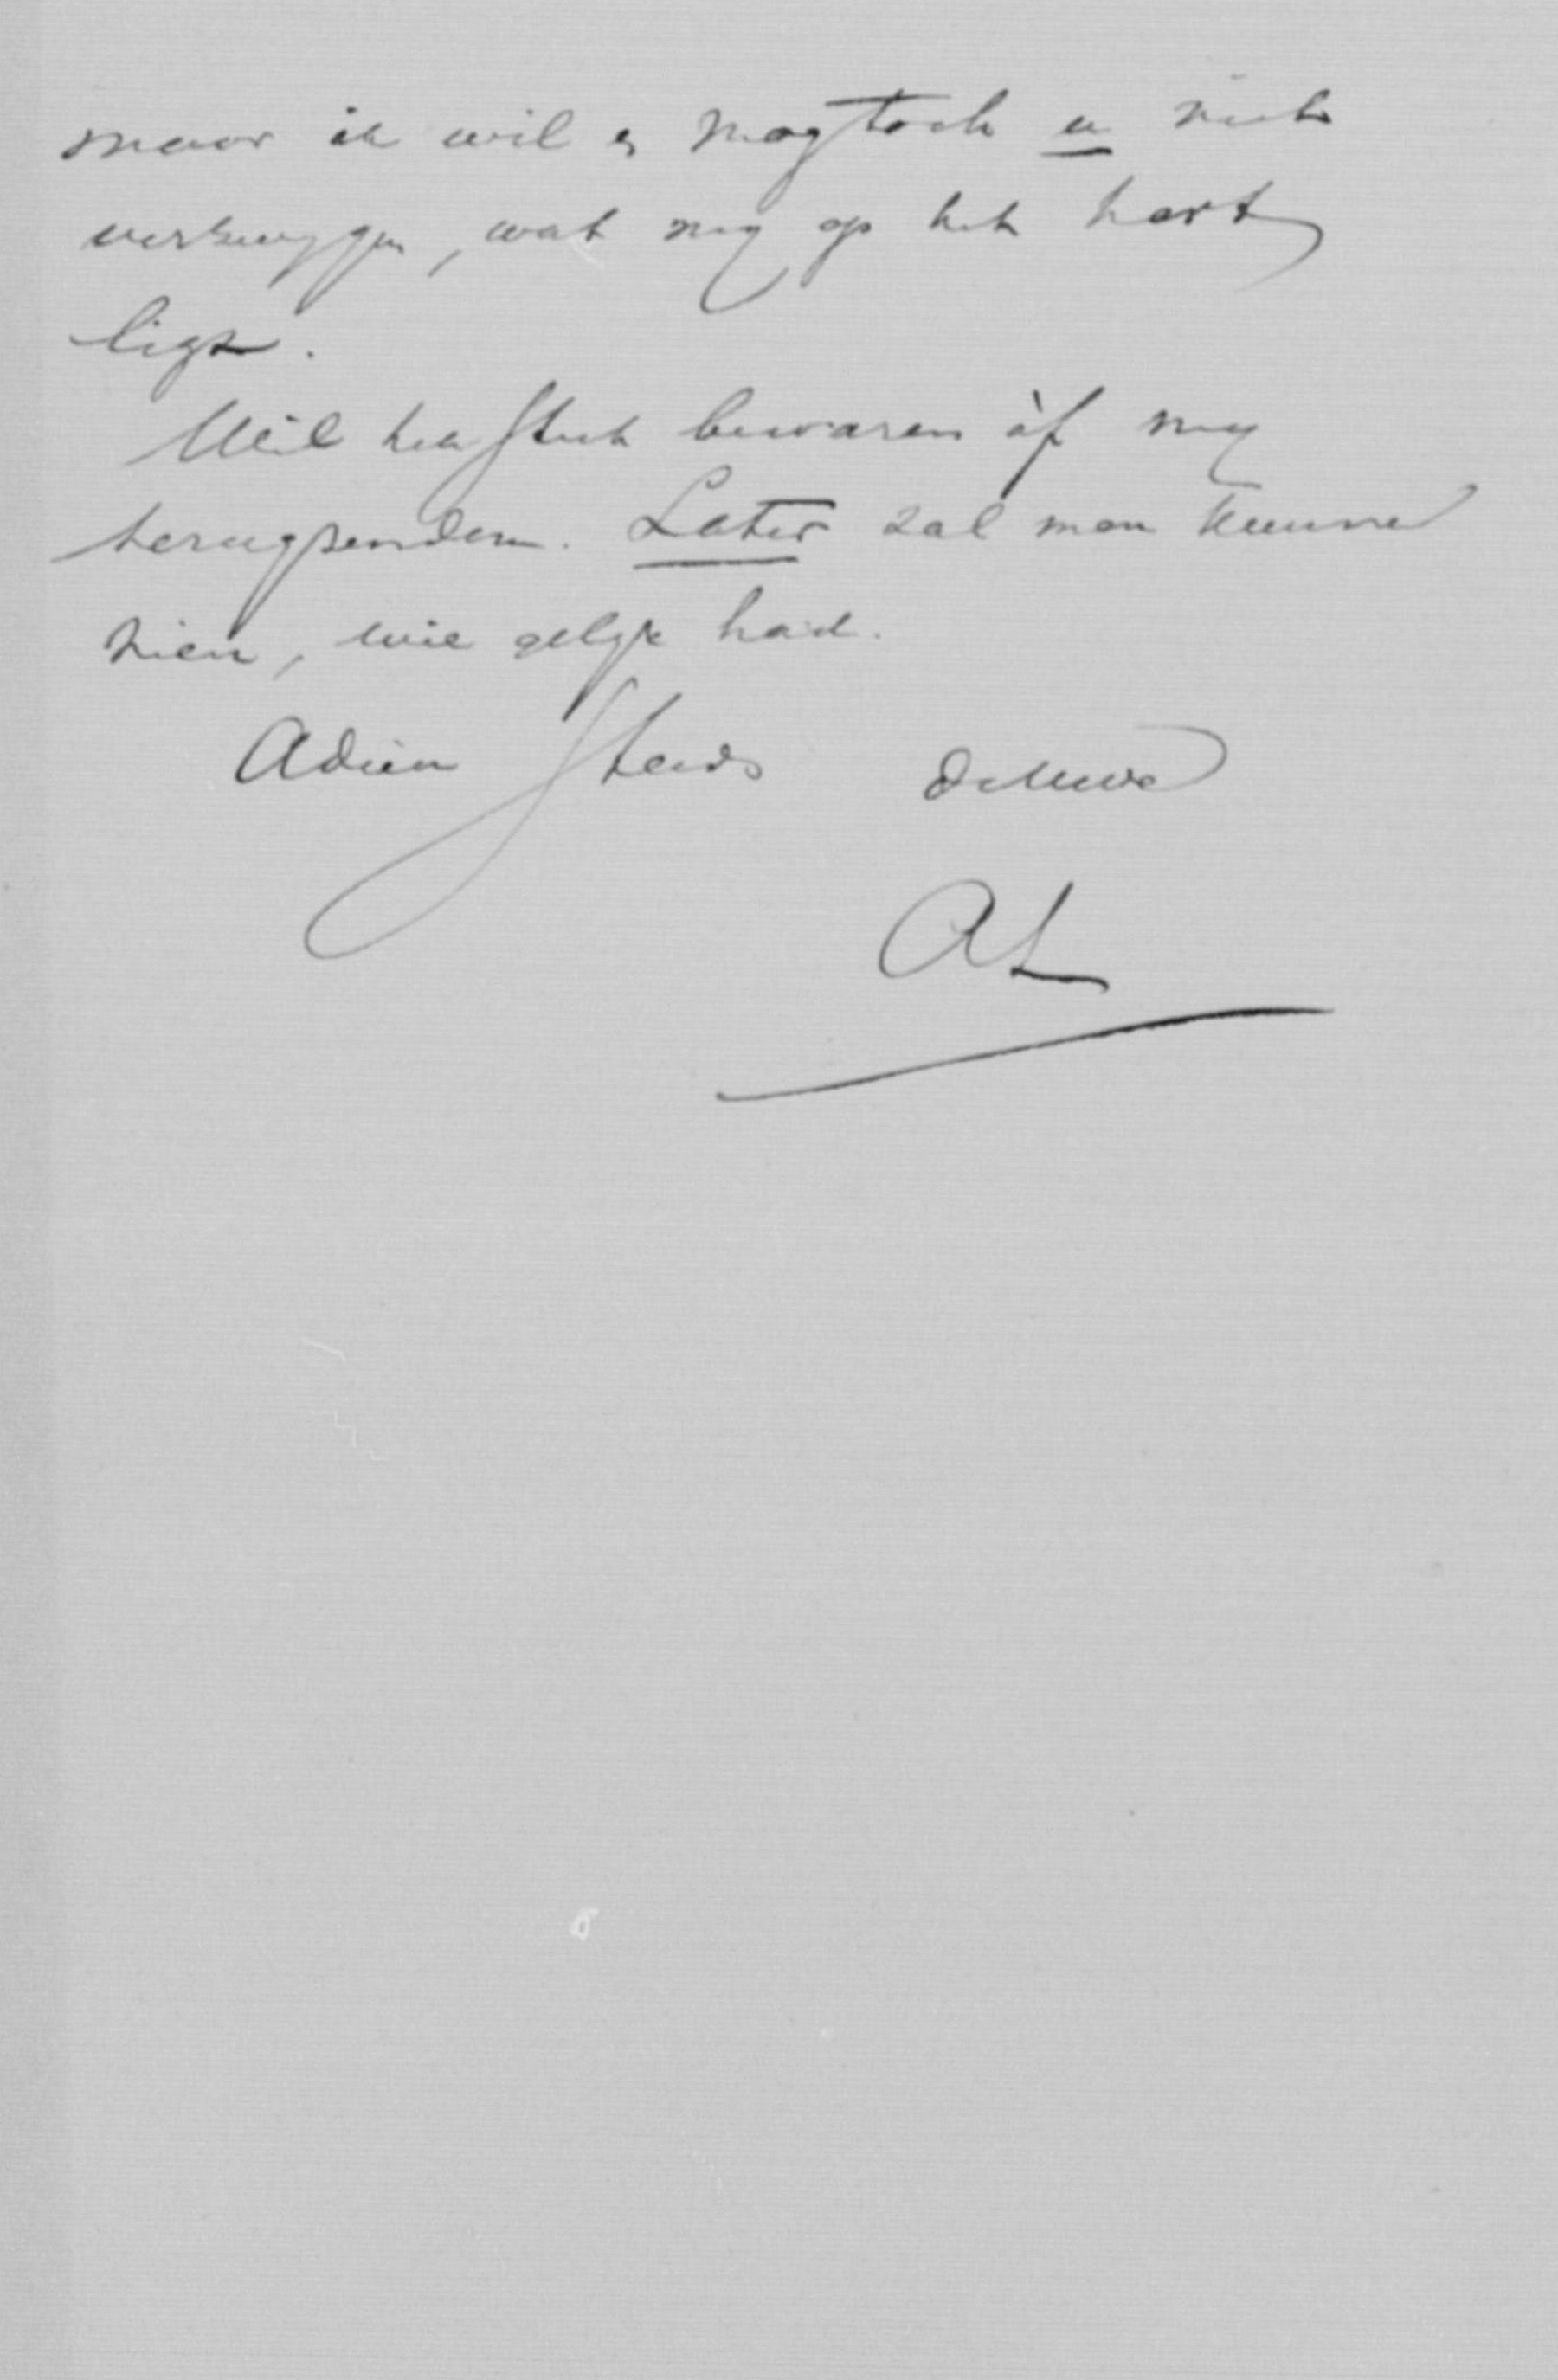 maar ik wil & mag toch u niet
verzwijgen, wat mij op het hart
ligt.
Wil het stuk bewaren òf mij
terugzenden. Later zal men kunnen
zien, wie gelijk had.
Adieu steeds de Uwe
AL